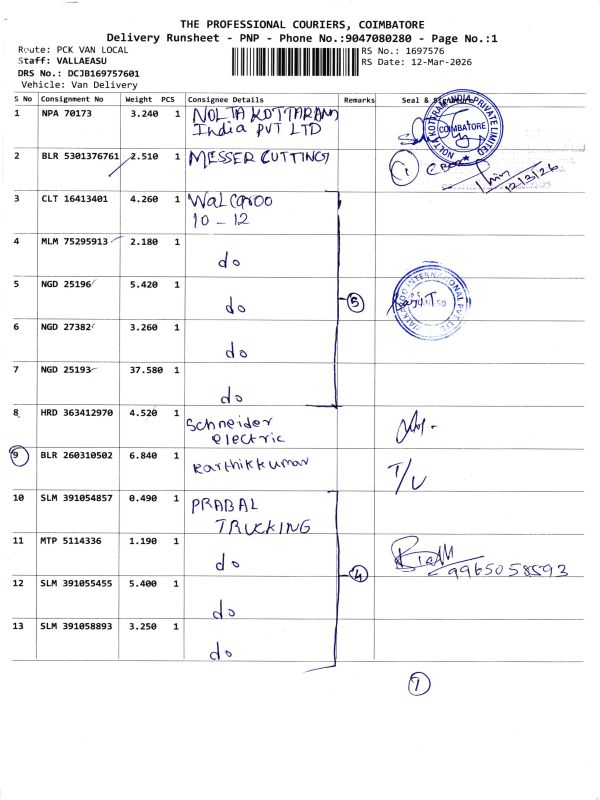 THE PROFESSIONAL COURIERS, COIMBATORE
Delivery Runsheet - PNP - Phone No.:9047080280 - Page No.:1
Route: PCK VAN LOCAL
RS No.: 1697576
Staff: VALLAEASU
RS Date: 12-Mar-2026
DRS No.: DCJB169757601
Vehicle: Van Delivery
S No Consignment No Weight PCS Consignee Details Remarks Seal &
1 NPA 70173 3.240 1 NOLTA KOTTARAM
India PVT LTD
NOLTA KOTTARAM INDIA PRIVATE LIMITED
COIMBATORE
2 BLR 5301376761 2.510 1 MESSER CUTTING
1
12/3/26
3 CLT 16413401 4.260 1 Walcaroo
10 - 12
4 MLM 75295913 2.180 1 do
5 NGD 25196 5.420 1 do
5
INTERNATIONAL PVT LTD
6 NGD 27382 3.260 1 do
7 NGD 25193 37.580 1 do
8 HRD 363412970 4.520 1 Schneider
electric
9 BLR 260310502 6.840 1 Karthikkumar
T/U
10 SLM 391054857 0.490 1 PRABAL
TRUCKING
11 MTP 5114336 1.190 1 do
4
9965058593
12 SLM 391055455 5.400 1 do
13 SLM 391058893 3.250 1 do